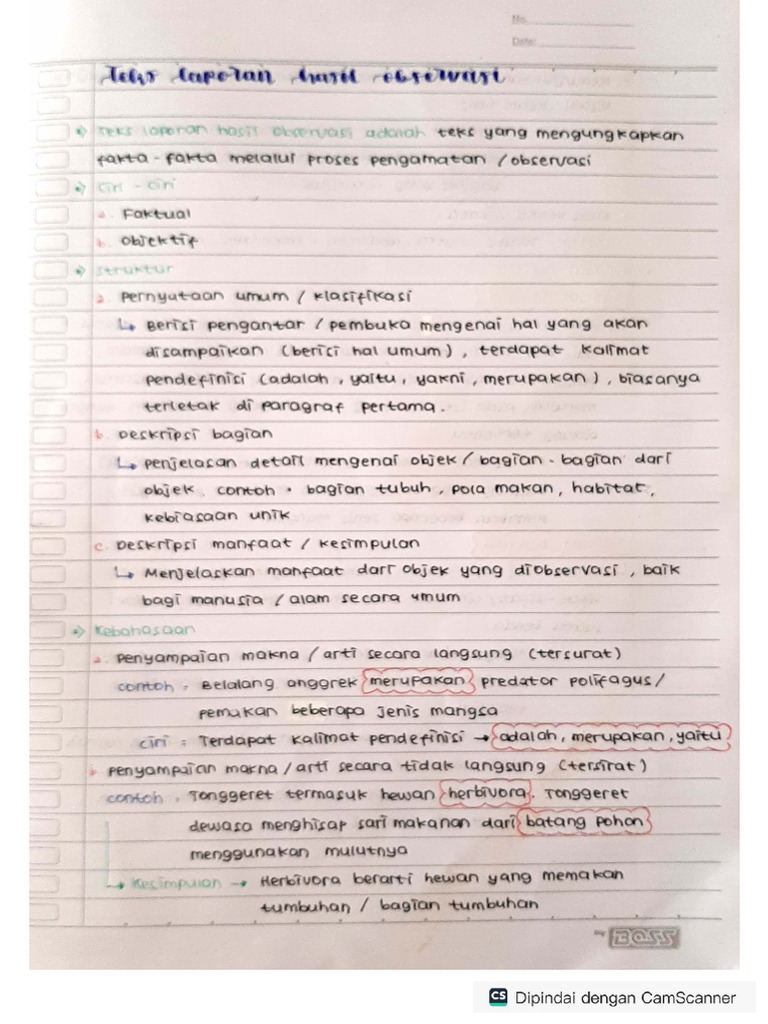 No.
Date:
Teks laporan hasil observasi
Teks laporan hasil observasi adalah teks yang mengungkapkan
fakta-fakta melalui proses pengamatan / observasi
Ciri - ciri
a. Faktual
b. Objektif
Struktur
a. Pernyataan umum / klasifikasi
↳ Berisi pengantar / pembuka mengenai hal yang akan
disampaikan (berisi hal umum), terdapat kalimat
pendefinisi (adalah, yaitu, yakni, merupakan), biasanya
terletak di paragraf pertama.
b. Deskripsi bagian
↳ Penjelasan detail mengenai objek / bagian-bagian dari
objek. contoh : bagian tubuh, pola makan, habitat,
kebiasaan unik
c. Deskripsi manfaat / kesimpulan
↳ Menjelaskan manfaat dari objek yang diobservasi, baik
bagi manusia / alam secara umum
Kebahasaan
a. Penyampaian makna / arti secara langsung (tersurat)
contoh : Belalang anggrek merupakan predator polifagus /
pemakan beberapa jenis mangsa
ciri : Terdapat kalimat pendefinisi → adalah, merupakan, yaitu
b. Penyampaian makna / arti secara tidak langsung (tersirat)
contoh : Tonggeret termasuk hewan herbivora. Tonggeret
dewasa menghisap sari makanan dari batang pohon
menggunakan mulutnya
↳ Kesimpulan → Herbivora berarti hewan yang memakan
tumbuhan / bagian tumbuhan
my BOSS
CS Dipindai dengan CamScanner